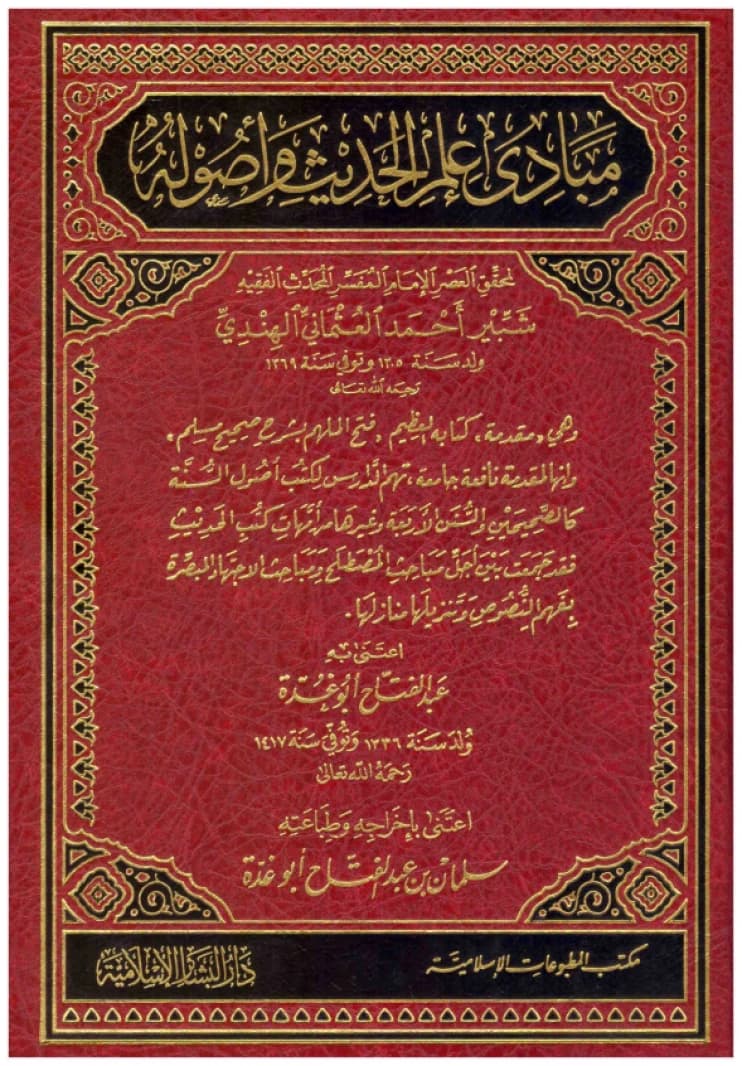 مَبَادِئُ عِلْمِ الحَدِيثِ وَأُصُولِهُ
لمحقق العصر الإمام المفسّر المحدّث الفقيه
شَبِّير أَحْمَد العُثْمَاني الهِنْدِيّ
ولد سَنة ١٣٠٥ وتوفي سَنة ١٣٦٩
رحمه الله تعالى
وهي «مقدمة» كتابه العظيم «فتح الملهم بشرح صحيح مسلم»
وإنها لمقدمة نافعة جامعة، تهم الدارس لكتب أصول السُّنَّة
كالصَّحِيحَين والسُّنَن الأربَعَة وغيرها من أمَّهات كتُب الحَديثِ
فقد جَمَعَت بَيْنَ أجَلِّ مَبَاحِثِ المُصْطَلَح ومَبَاحث الاجتهاد المبصِّرة
بِفَهم النُّصُوصِ وَتنزيلها منازلها.
اعتَنى بهِ
عَبد الفتّاح أبو غُدّة
وُلد سَنة ١٣٣٦ وَتُوفّي سَنة ١٤١٧
رَحمَهُ الله تعالىٰ
اعتَنىٰ بإخرَاجِهِ وَطِبَاعَتِهِ
سلمان بن عبد الفتّاح أبو غدّة
مكتب المطبوعات الإسلاميَّة
دَارُ البَشَائِر الإِسْلَامِيَّة